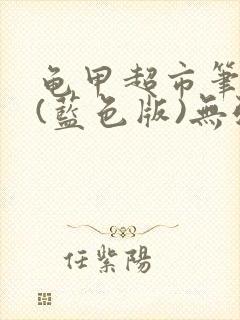 龟甲超市筆
(藍色版)無
任紫陽